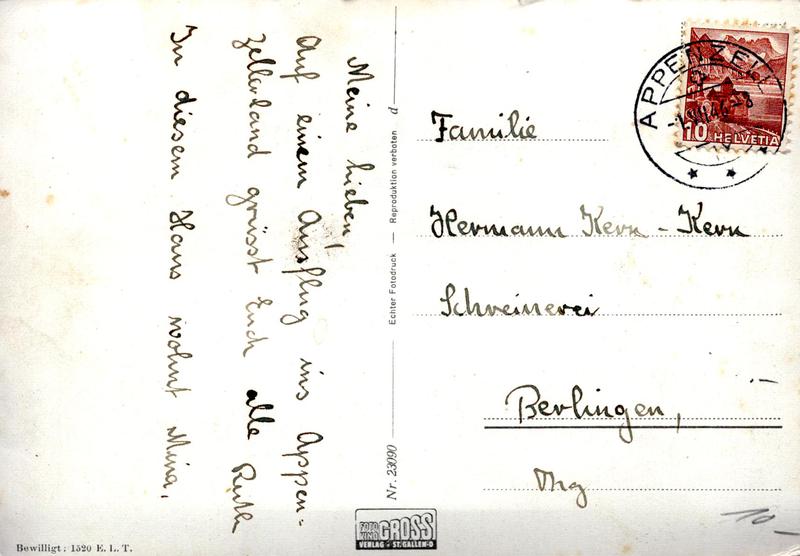 Meine Lieben!
Auf einem Ausflug ins Appen-
zellerland grüsst Euch alle Ruth
In diesem Haus wohnt Mina.
Echter Fotodruck — Reproduktion verboten
Nr. 23090
APPENZELL
10 HELVETIA
Familie
Hermann Kern - Kern
Schreinerei
Berlingen,
Thg
10.-
FOTO
KINO GROSS
VERLAG ST. GALLEN-O
Bewilligt: 1520 E. L. T.